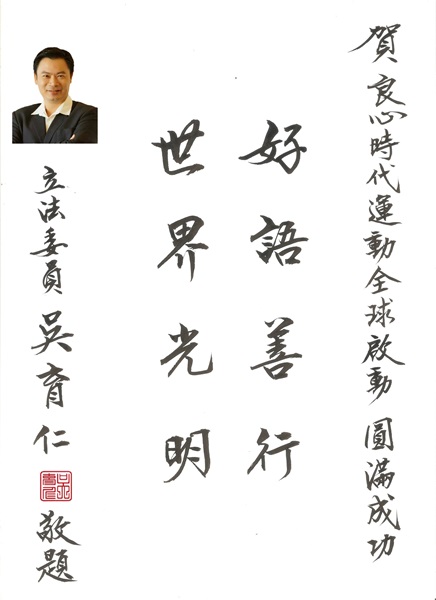 賀 良心時代運動全球啟動 圓滿成功
好語善行
世界光明
立法委員 吳育仁 敬題